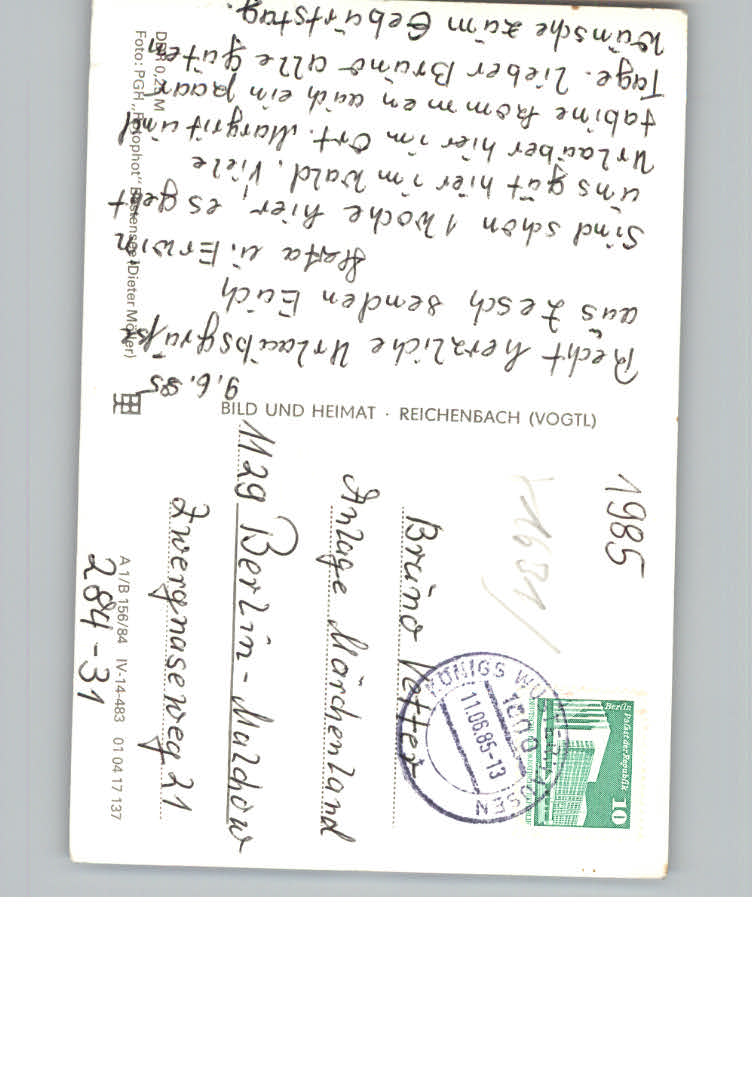 9.6.85
Recht herzliche Urlaubsgrüße
aus Zesch senden Euch
Herta u. Erwin
Sind schon 1 Woche hier, es geht
uns gut hier im Wald. Viele
Urlauber hier im Ort. Margrit und
tabine kommen auch ein paar
Tage. Lieber Bruno alle guten
Wünsche zum Geburtstag.
DDR 0,20 M
Foto: PGH „Fotophot“ Bestensee (Dieter Möller)
BILD UND HEIMAT · REICHENBACH (VOGTL)
1985
Berlin
Palast der Republik
10
KÖNIGS WUSTERHAUSEN
11.06.85-13
Bruno Vetter
Anlage Märchenland
1129 Berlin-Malchow
Zwergnaseweg 21
A 1/B 156/84 IV-14-483 01 04 17 137
284-31